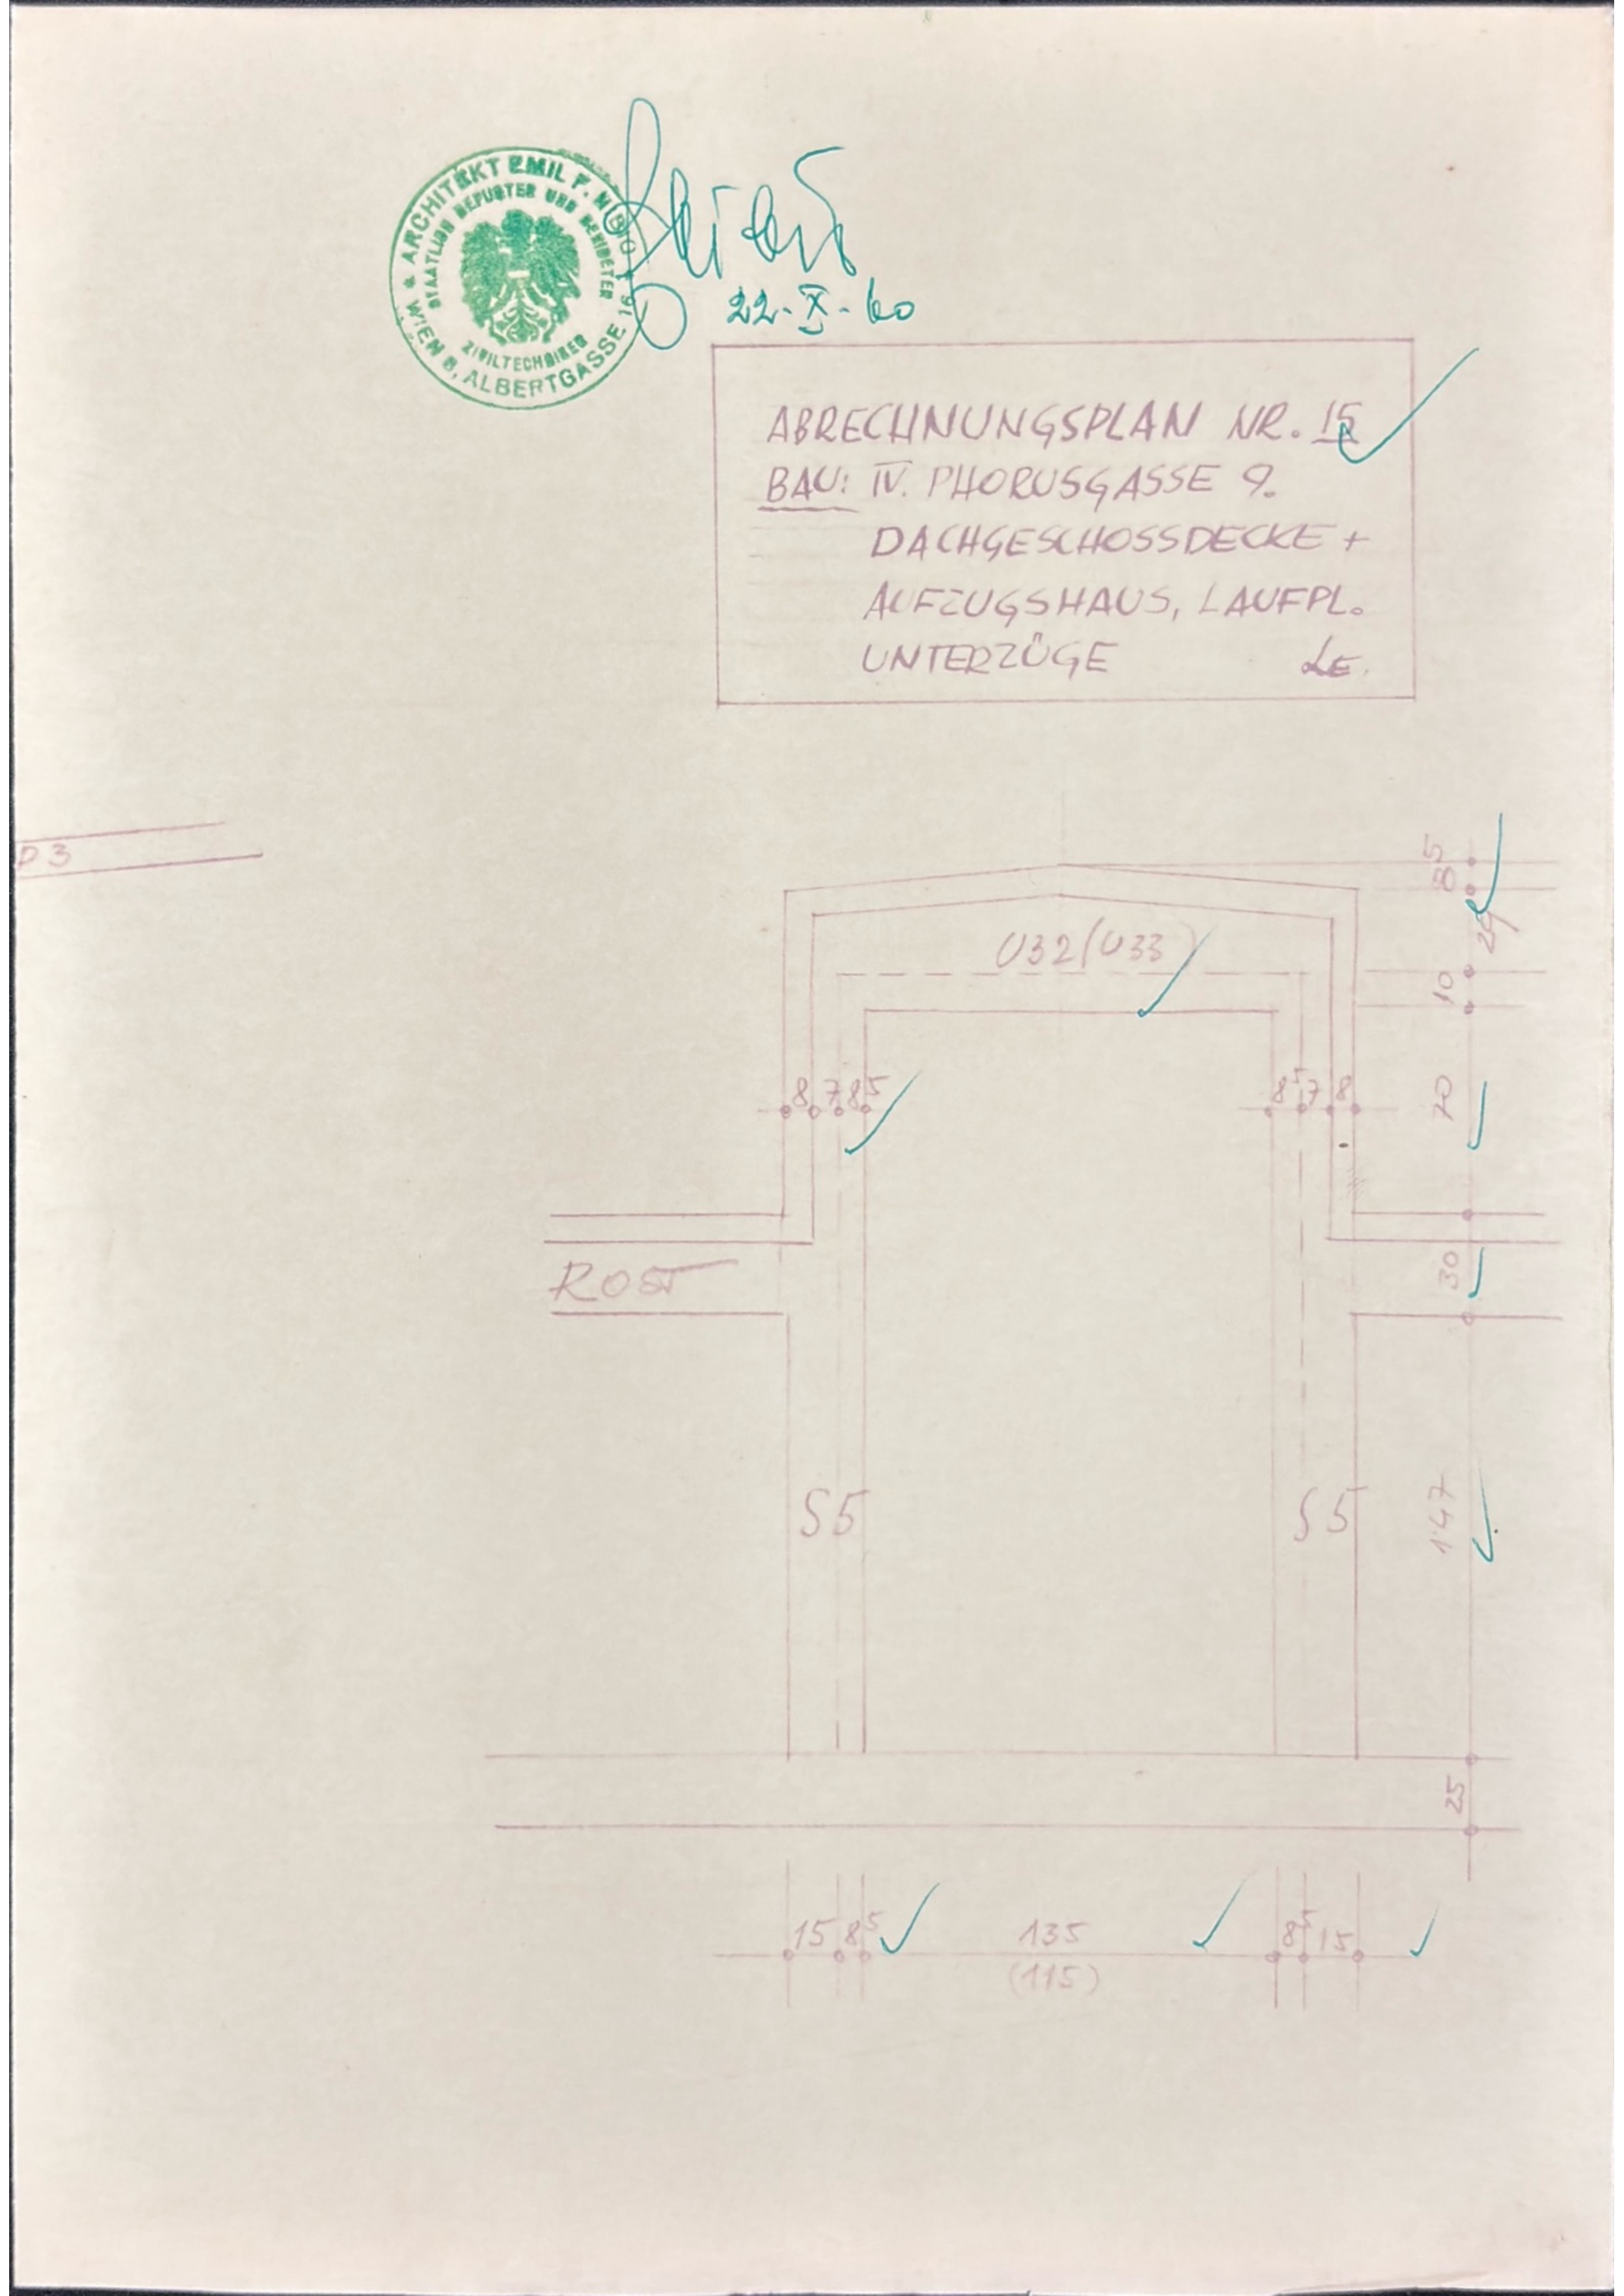 ARCHITEKT EMIL F.
STAATLICH BEFUGTER UND BEEIDETER
ZIVILTECHNIKER
WIEN 8, ALBERTGASSE 16
22-X-60
ABRECHNUNGSPLAN NR. 15
BAU: IV. PHORUSGASSE 9.
DACHGESCHOSSDECKE +
AUFZUGSHAUS, LAUFPL.
UNTERZÜGE LE.
P3
5
8
U32 (U33)
29
10
8 7 8⁵
8⁵ 7 8
70
ROST
30
S5
S5
147
25
15 8⁵ 135 8⁵ 15
(115)